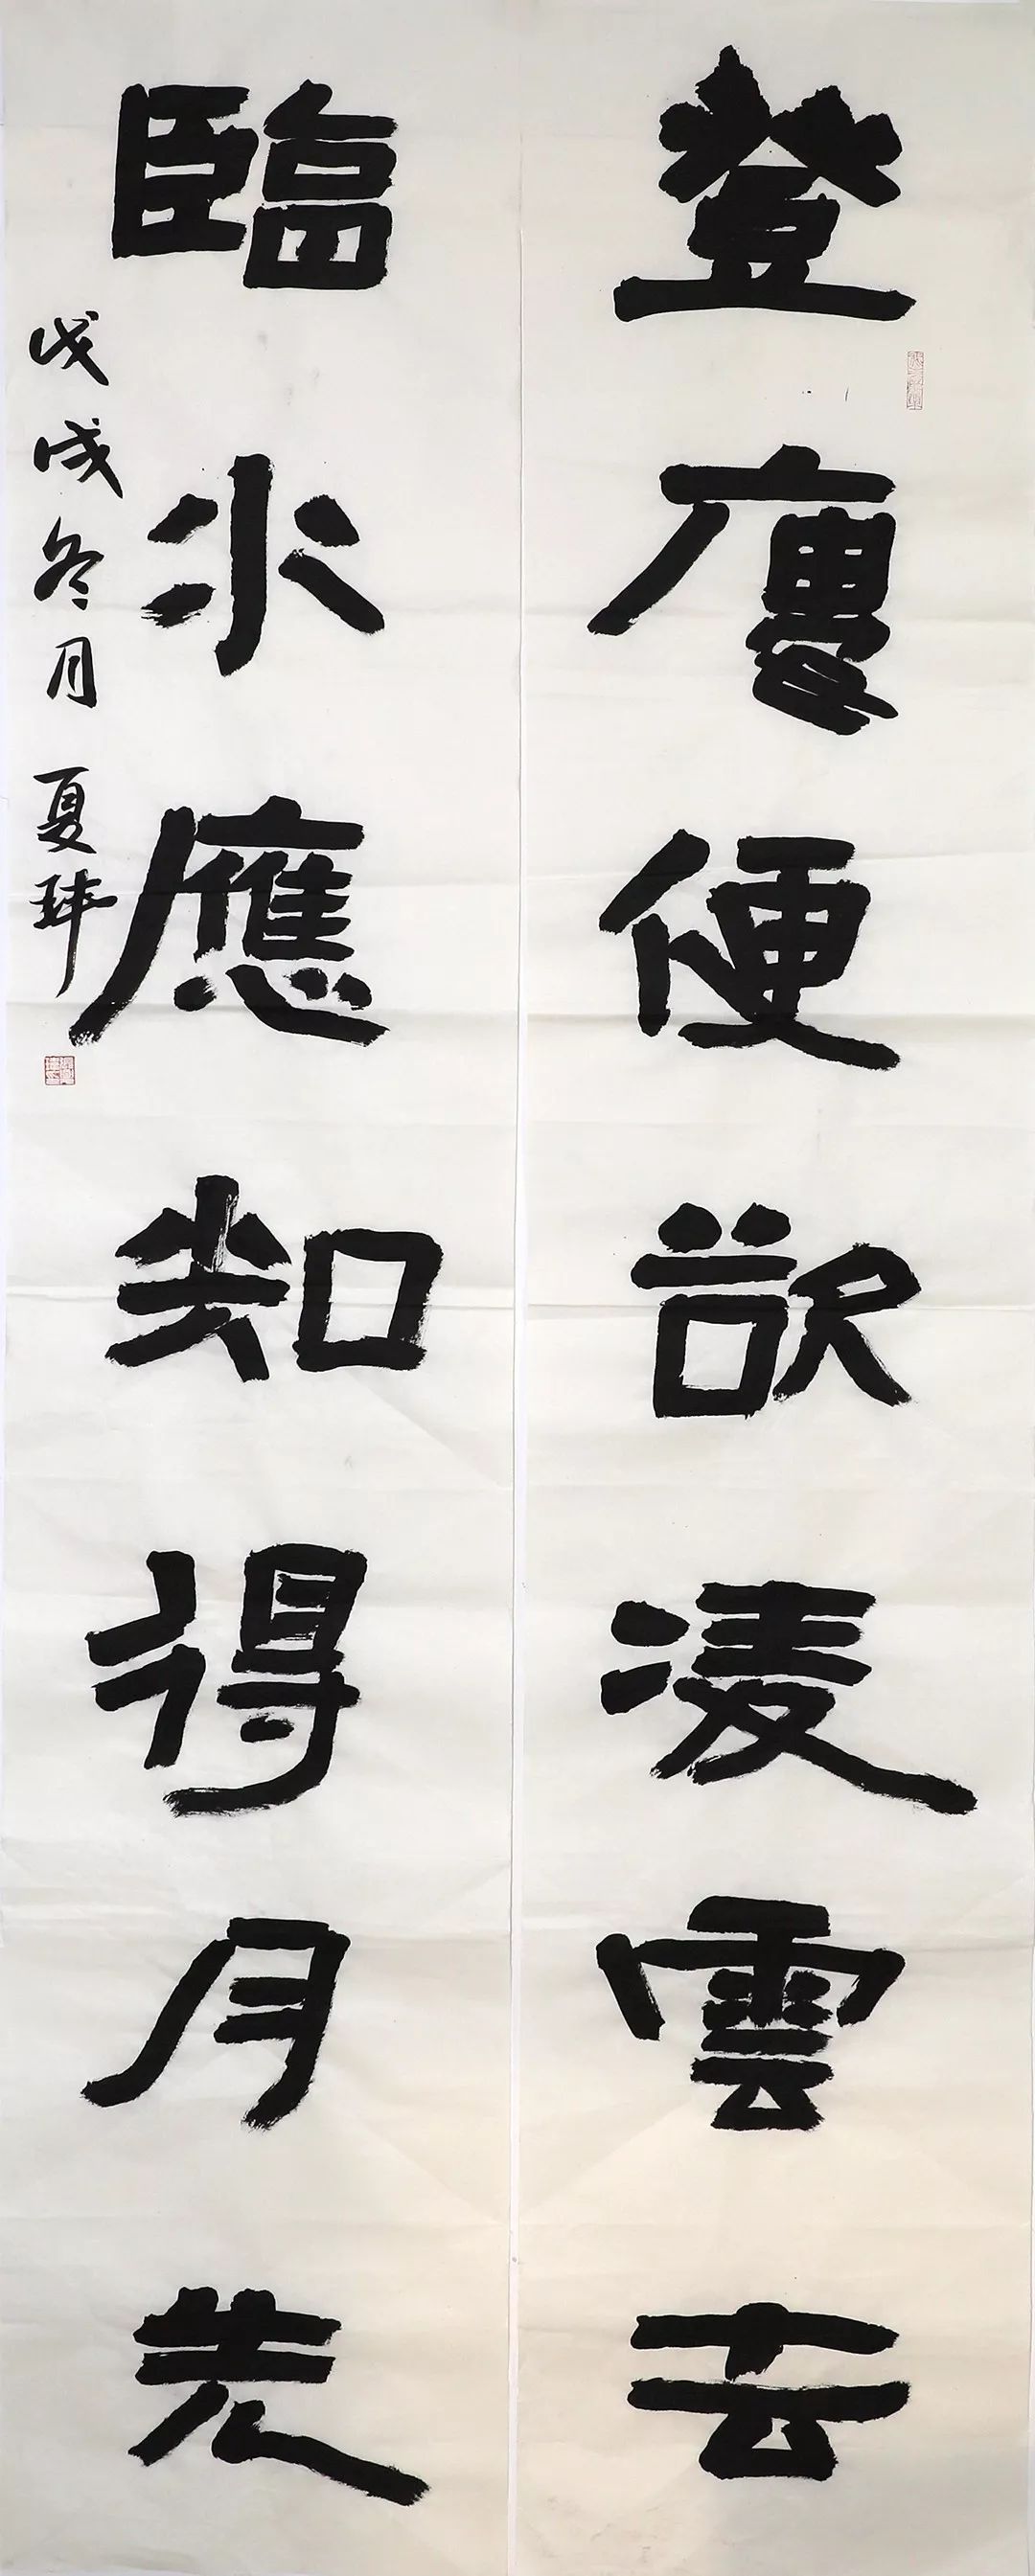 登廔便欲凌雲去
臨水應知得月先
戊戌冬月 夏